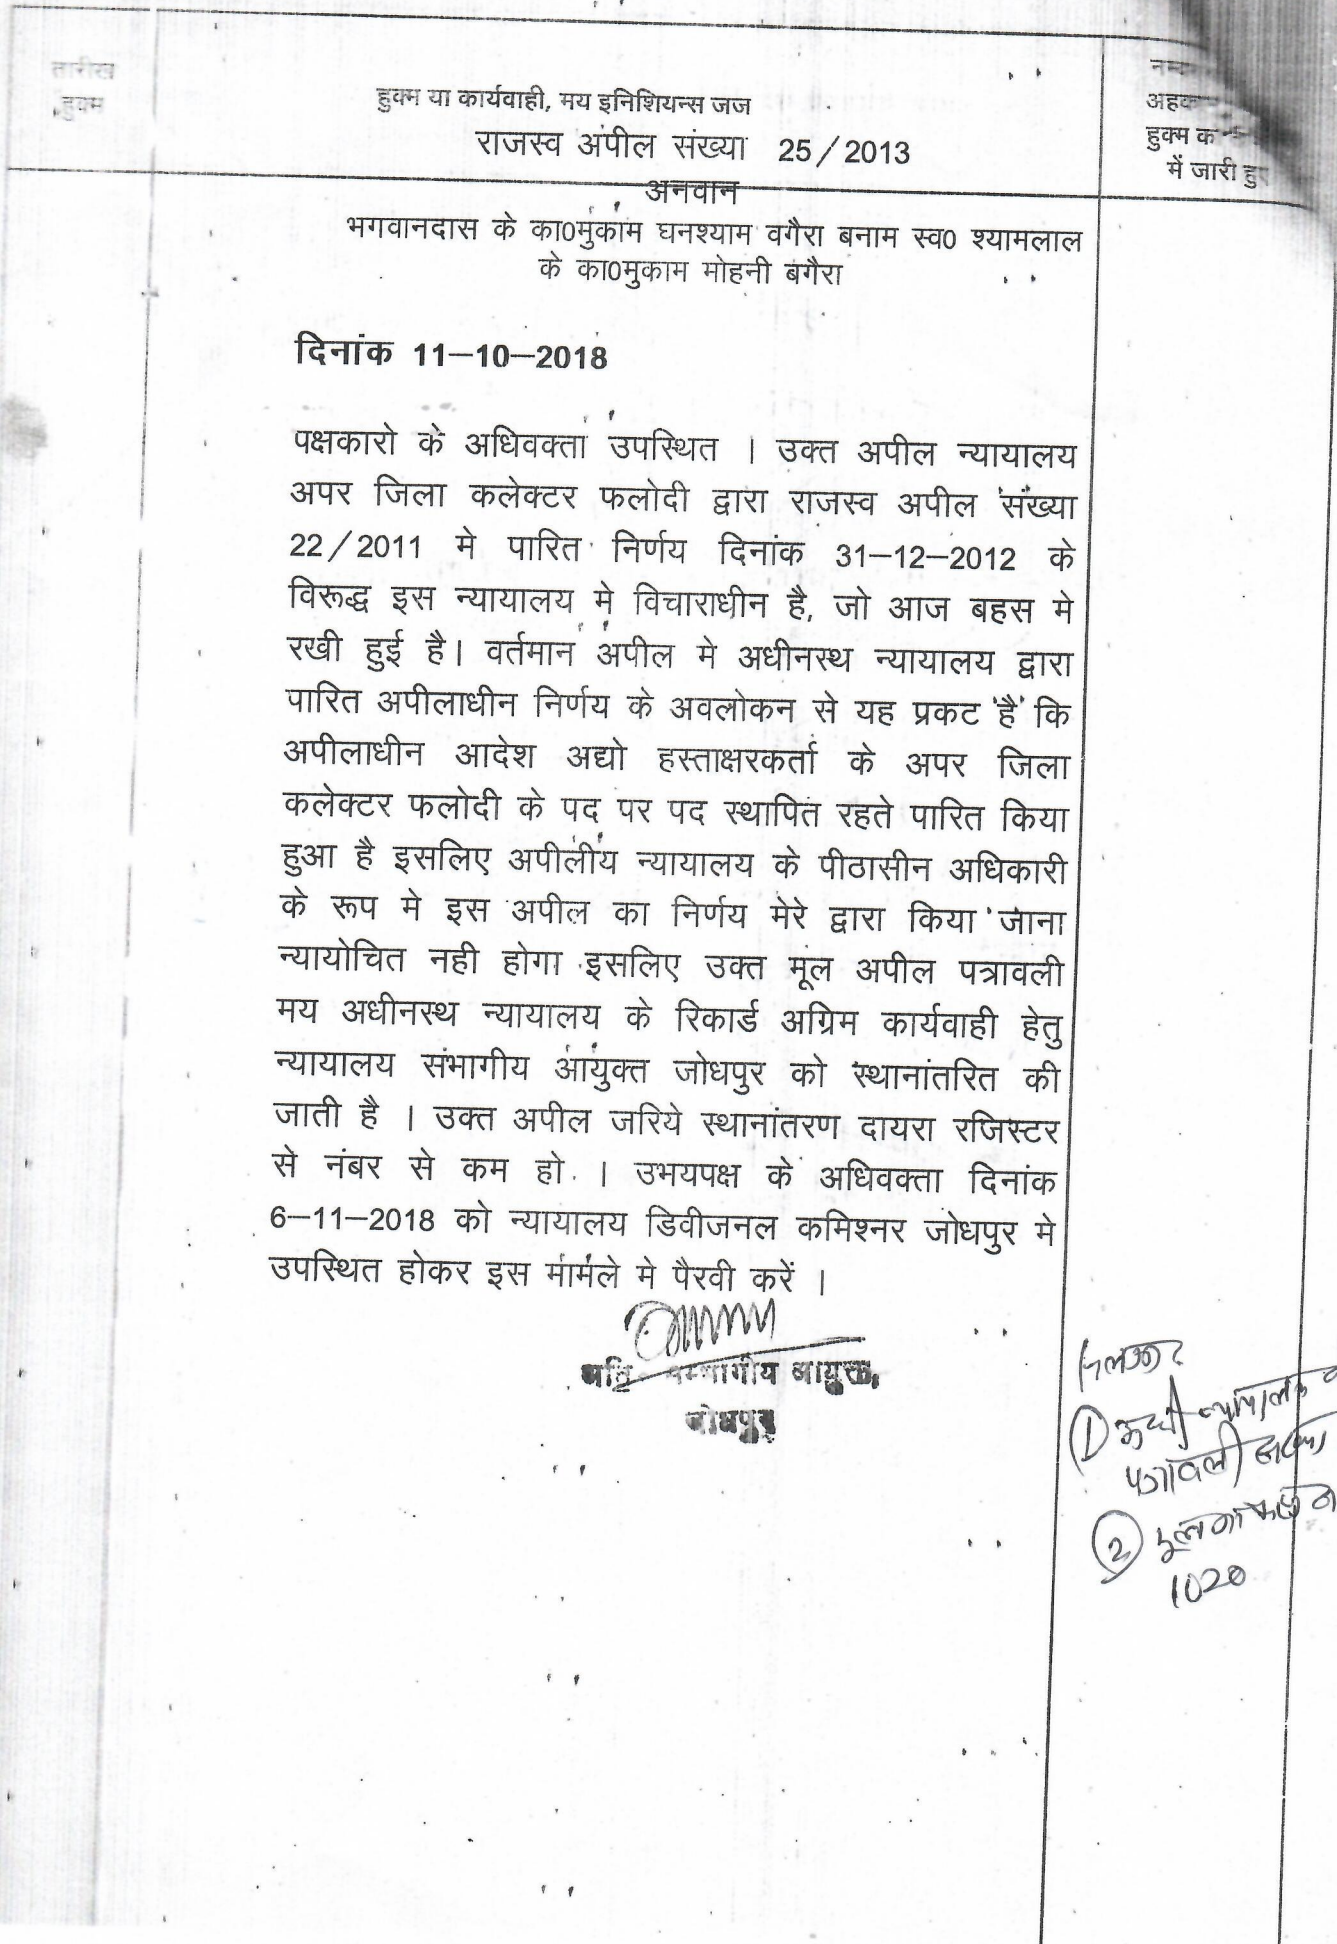 तारीख
हुक्म
हुक्म या कार्यवाही, मय इनिशियन्स जज
राजस्व अपील संख्या 25/2013
अहक
हुक्म क
में जारी हु
अनवान
भगवानदास के का0मुकाम घनश्याम वगैरा बनाम स्व0 श्यामलाल
के का0मुकाम मोहनी बगैरा
दिनांक 11–10–2018
पक्षकारो के अधिवक्ता उपस्थित । उक्त अपील न्यायालय
अपर जिला कलेक्टर फलोदी द्वारा राजस्व अपील संख्या
22/2011 मे पारित निर्णय दिनांक 31–12–2012 के
विरूद्ध इस न्यायालय मे विचाराधीन है, जो आज बहस मे
रखी हुई है। वर्तमान अपील मे अधीनस्थ न्यायालय द्वारा
पारित अपीलाधीन निर्णय के अवलोकन से यह प्रकट है कि
अपीलाधीन आदेश अद्यो हस्ताक्षरकर्ता के अपर जिला
कलेक्टर फलोदी के पद पर पद स्थापित रहते पारित किया
हुआ है इसलिए अपीलीय न्यायालय के पीठासीन अधिकारी
के रूप मे इस अपील का निर्णय मेरे द्वारा किया जाना
न्यायोचित नही होगा इसलिए उक्त मूल अपील पत्रावली
मय अधीनस्थ न्यायालय के रिकार्ड अग्रिम कार्यवाही हेतु
न्यायालय संभागीय आयुक्त जोधपुर को स्थानांतरित की
जाती है । उक्त अपील जरिये स्थानांतरण दायरा रजिस्टर
से नंबर से कम हो । उभयपक्ष के अधिवक्ता दिनांक
6–11–2018 को न्यायालय डिवीजनल कमिश्नर जोधपुर मे
उपस्थित होकर इस मामले मे पैरवी करें ।
आयुक्त,
जोधपुर
1
पत्रावली
2
1020